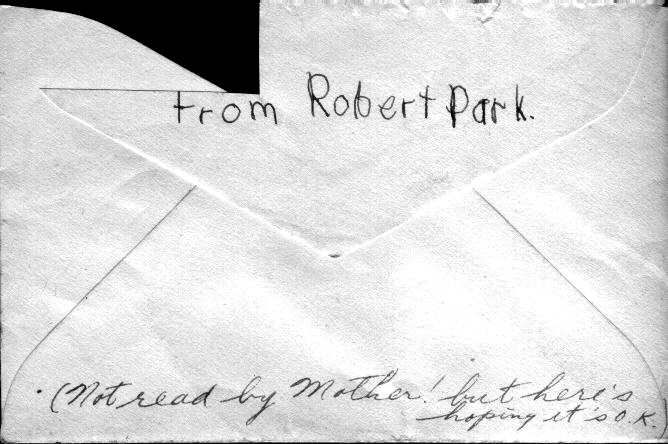 from Robert Park.
(Not read by Mother! but here's
hoping it's O.K.